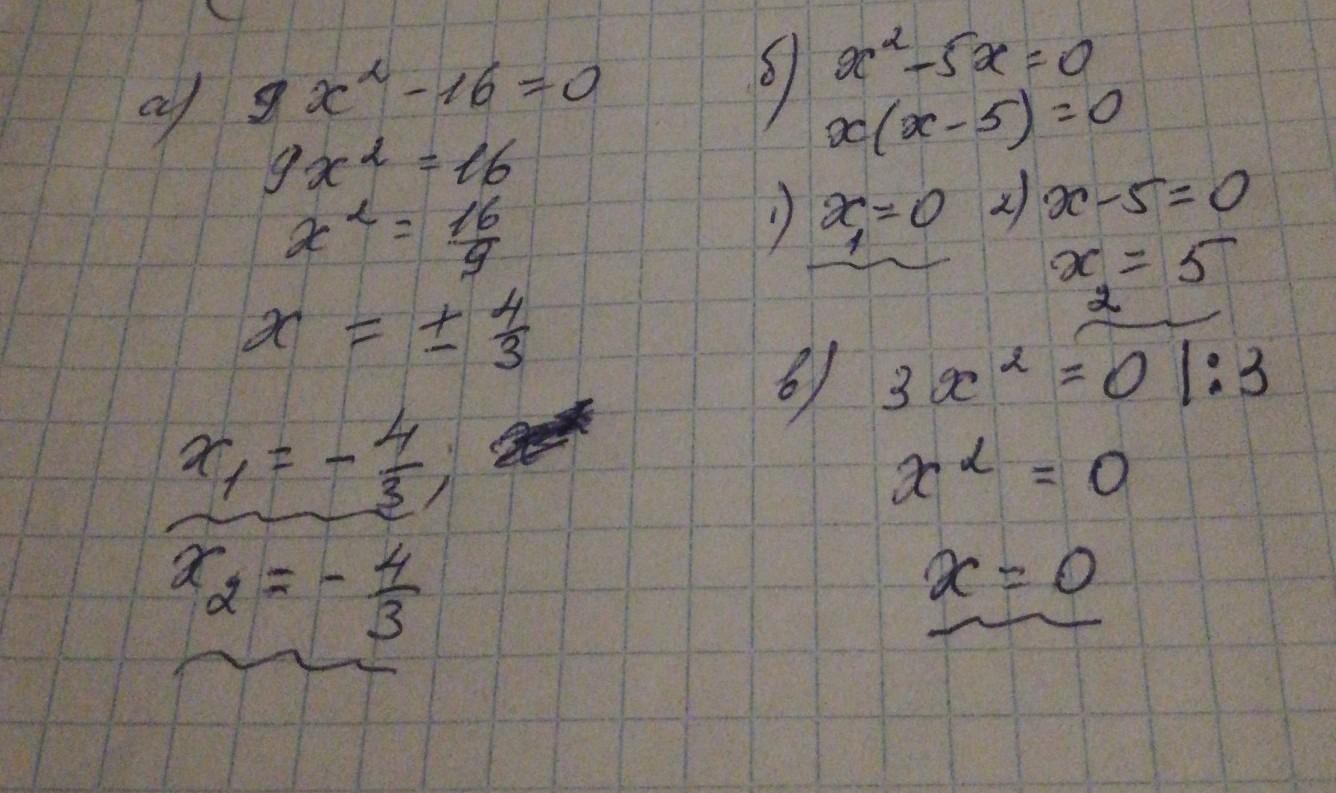 а) 9x² - 16 = 0
9x² = 16
x² = 16/9
x = ± 4/3
x₁ = - 4/3;
x₂ = - 4/3
б) x² - 5x = 0
x(x - 5) = 0
1) x₁ = 0 2) x - 5 = 0
x₂ = 5
в) 3x² = 0 |:3
x² = 0
x = 0